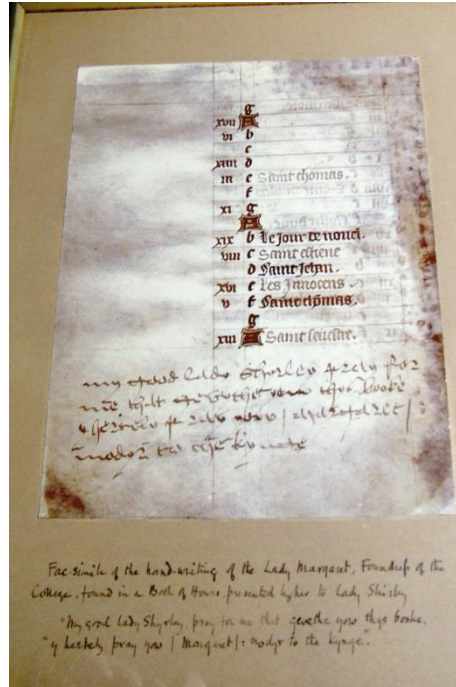 g
xvii A
vi b
c
xiii d
iii e Saint thomas.
f
xi g
A
xix b Le jour de nouel.
viii c Saint estiene
d Saint Jehan.
xvi e Les Innocens
v f Saint thomas.
g
xiii A Saint seuestre.
my good lady Shyrley pray for
me that gevythe yow thys booke
y hertely pray yow / Margaret /
modyr to the kynge
Fac-simile of the hand-writing of the Lady Margaret, Foundress of the
College, found in a Book of Hours presented by her to Lady Shirley
"My good Lady Shyrley, pray for me that gevethe yow thys booke,
"y hertely pray yow / Margaret /: modyr to the Kynge".